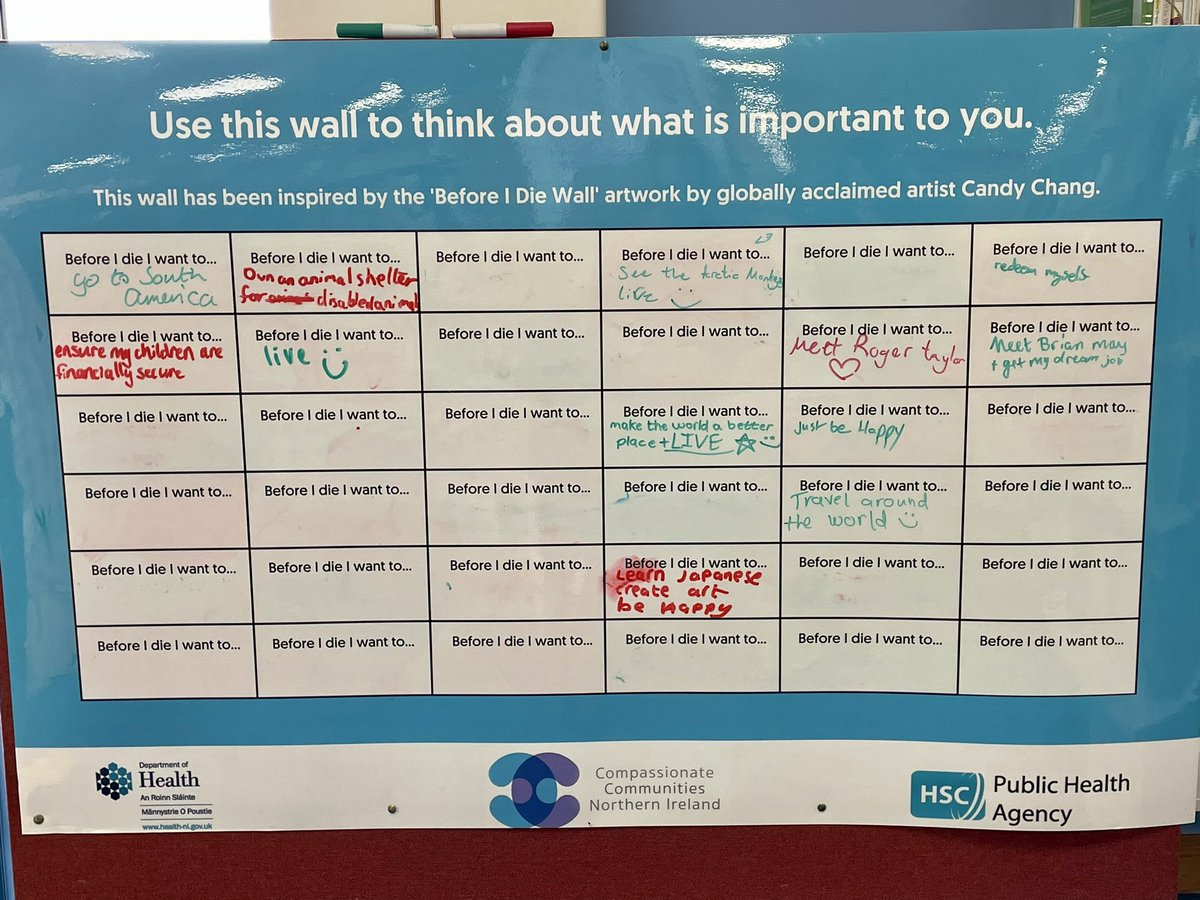 Use this wall to think about what is important to you.
This wall has been inspired by the 'Before I Die Wall' artwork by globally acclaimed artist Candy Chang.
Before I die I want to...
go to South
america
Before I die I want to...
Own an animal shelter
for disabled animal
Before I die I want to...
Before I die I want to...
<3
See the Arctic Monkeys
live
Before I die I want to...
Before I die I want to...
redeem myself
Before I die I want to...
ensure my children are
financially secure
Before I die I want to...
live
Before I die I want to...
Before I die I want to...
Before I die I want to...
Mett Roger taylor
Before I die I want to...
Meet Brian may
+ get my dream job
Before I die I want to...
Before I die I want to...
Before I die I want to...
Before I die I want to...
make the world a better
place + LIVE
Before I die I want to...
Just be Happy
Before I die I want to...
Before I die I want to...
Before I die I want to...
Before I die I want to...
Before I die I want to...
Before I die I want to...
Travel around
the world
Before I die I want to...
Before I die I want to...
Before I die I want to...
Before I die I want to...
Before I die I want to...
Learn Japanese
create art
be Happy
Before I die I want to...
Before I die I want to...
Before I die I want to...
Before I die I want to...
Before I die I want to...
Before I die I want to...
Before I die I want to...
Before I die I want to...
Department of
Health
An Roinn Sláinte
Männystrie O Poustie
www.health-ni.gov.uk
Compassionate
Communities
Northern Ireland
HSC
Public Health
Agency